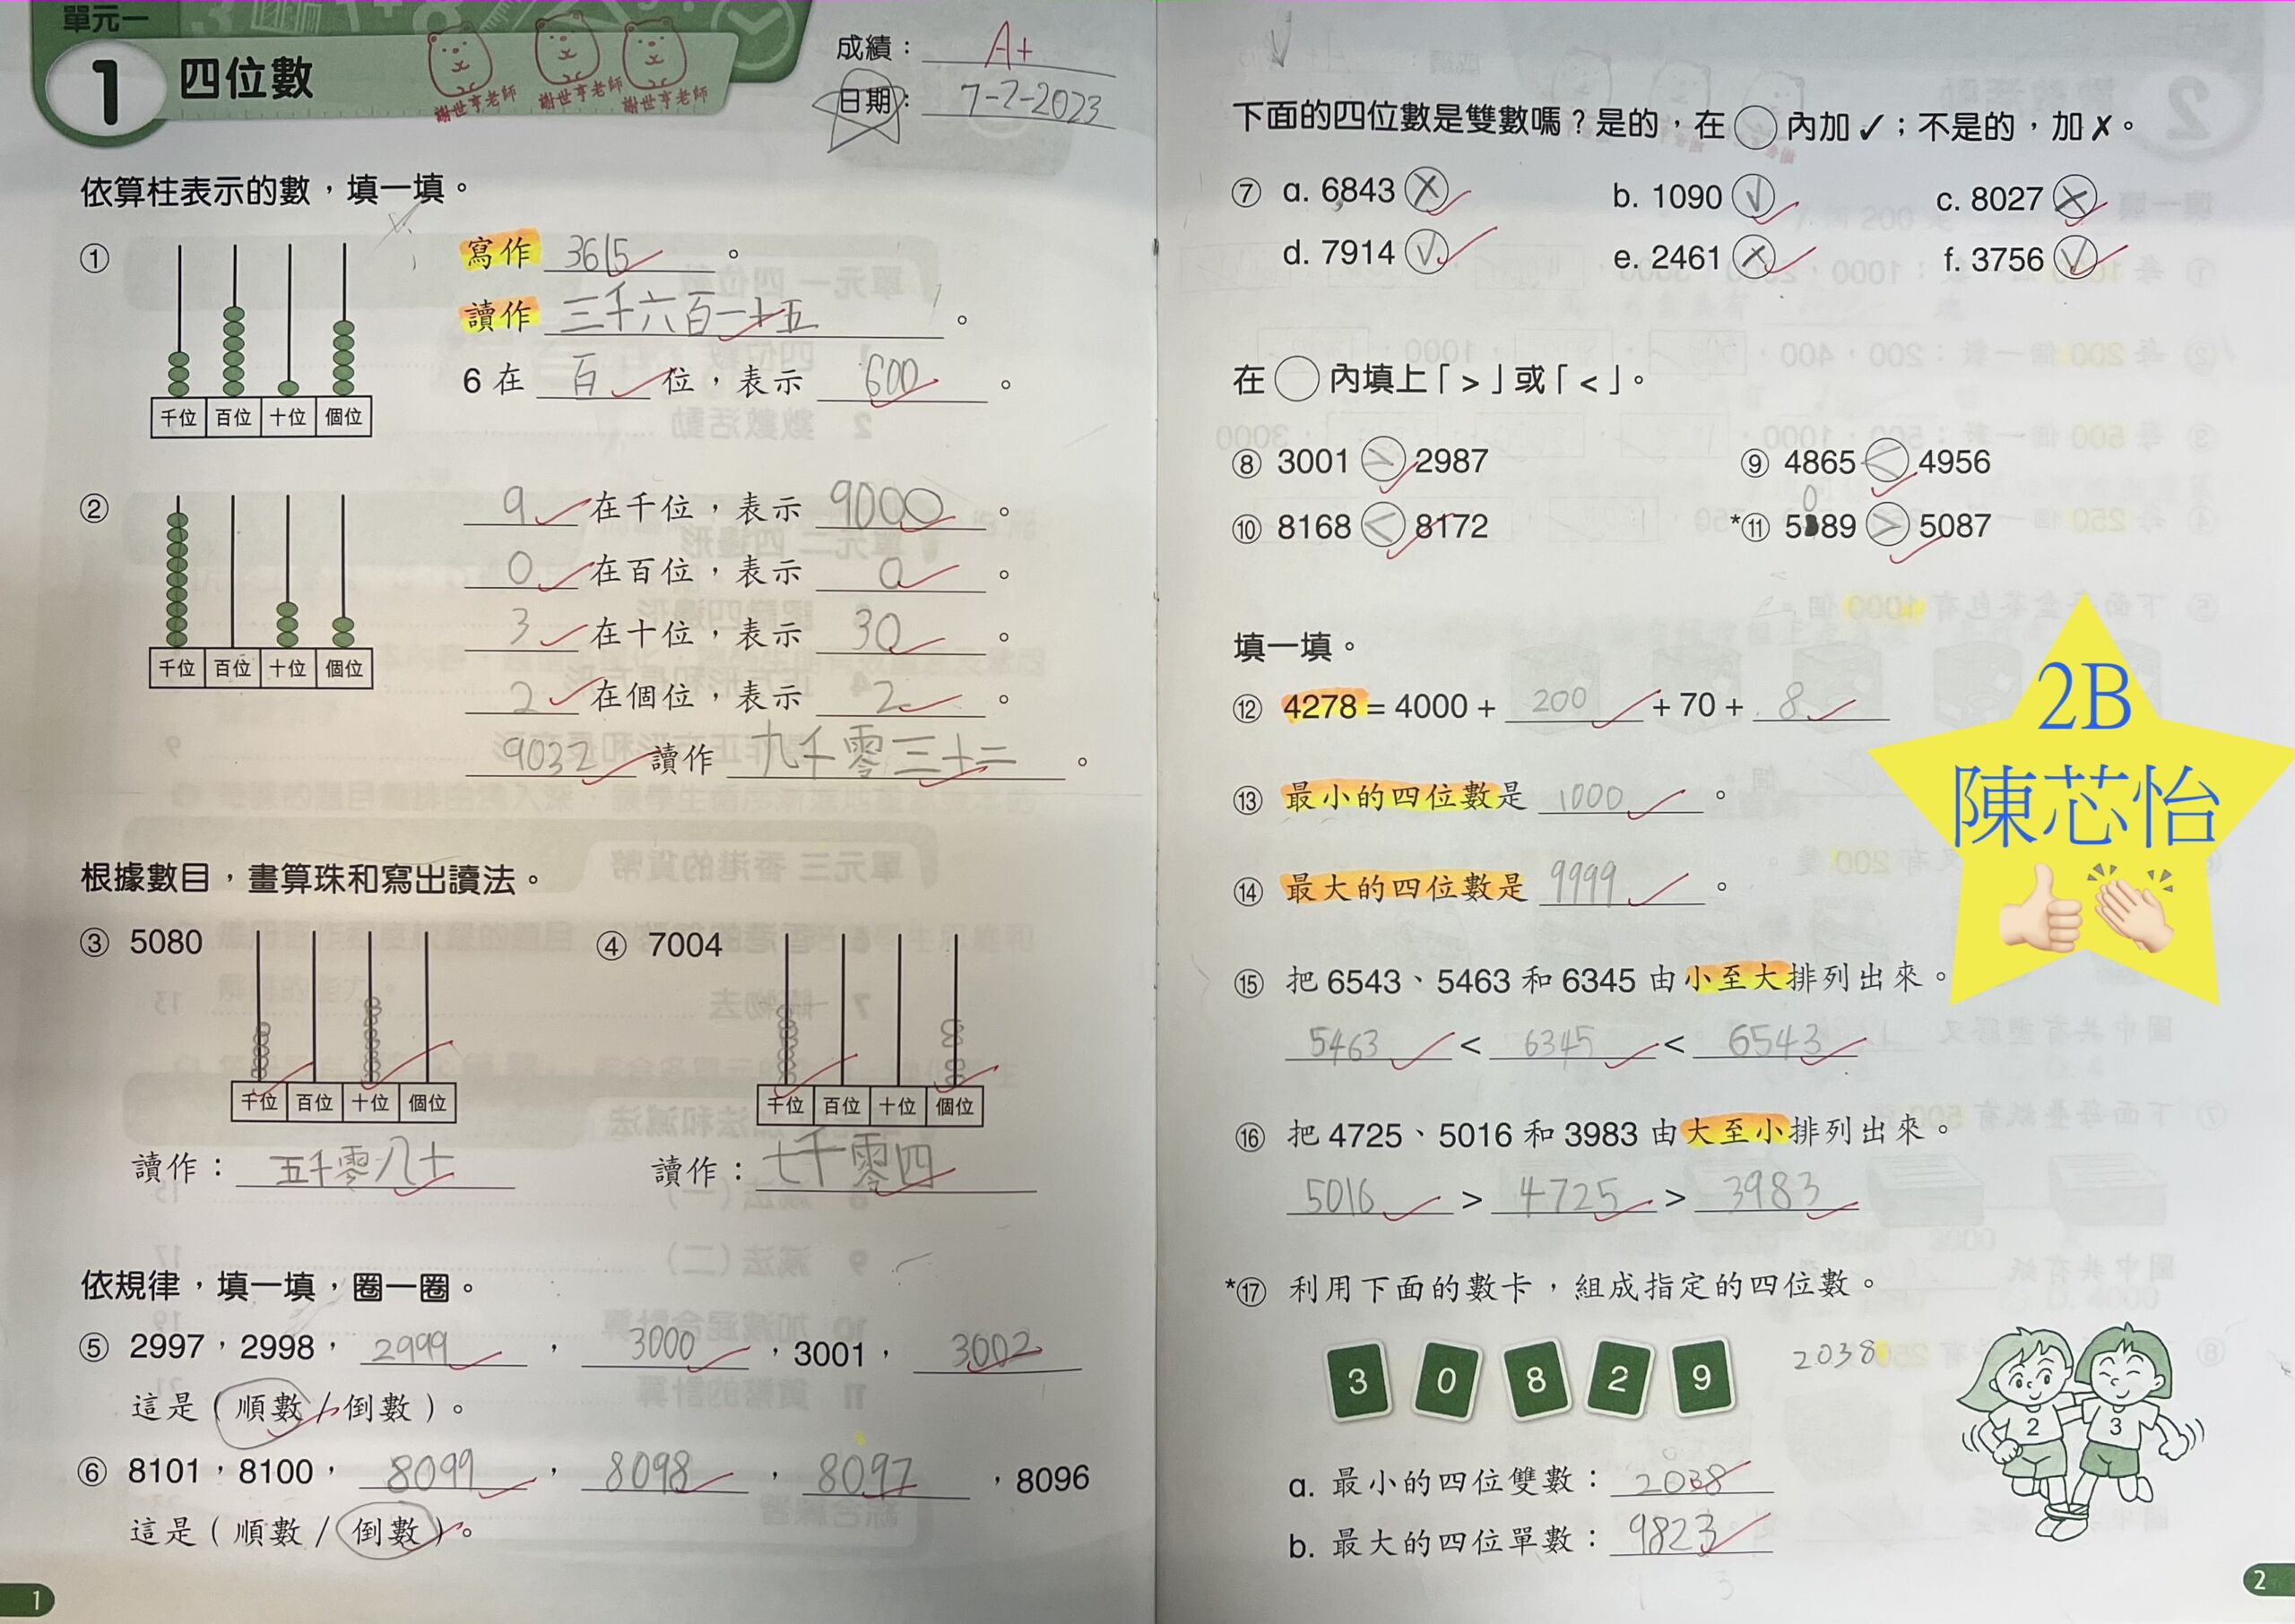 單元一
1 四位數
謝世亨老師 謝世亨老師 謝世亨老師
成績: A+
日期: 7-2-2023
依算柱表示的數,填一填。
① 寫作 3615 。
讀作 三千六百一十五 。
6 在 百 位,表示 600 。
千位 百位 十位 個位
② 9 在千位,表示 9000 。
0 在百位,表示 0 。
3 在十位,表示 30 。
2 在個位,表示 2 。
千位 百位 十位 個位
9032 讀作 九千零三十二 。
根據數目,畫算珠和寫出讀法。
③ 5080 ④ 7004
千位 百位 十位 個位 千位 百位 十位 個位
讀作: 五千零八十 讀作: 七千零四
依規律,填一填,圈一圈。
⑤ 2997,2998, 2999 , 3000 ,3001, 3002
這是(順數/倒數)。
⑥ 8101,8100, 8099 , 8098 , 8097 ,8096
這是(順數/倒數)。
1
下面的四位數是雙數嗎?是的,在○內加✓;不是的,加✗。
⑦ a. 6843 ✗ b. 1090 ✓ c. 8027 ✗
d. 7914 ✓ e. 2461 ✗ f. 3756 ✓
在○內填上「>」或「<」。
⑧ 3001 > 2987 ⑨ 4865 < 4956
⑩ 8168 < 8172 *⑪ 5089 > 5087
填一填。
⑫ 4278 = 4000 + 200 + 70 + 8
⑬ 最小的四位數是 1000 。
⑭ 最大的四位數是 9999 。
⑮ 把 6543、5463 和 6345 由小至大排列出來。
5463 < 6345 < 6543
⑯ 把 4725、5016 和 3983 由大至小排列出來。
5016 > 4725 > 3983
*⑰ 利用下面的數卡,組成指定的四位數。
3 0 8 2 9 2038
2 3
a. 最小的四位雙數: 2038
b. 最大的四位單數: 9823
2
2B
陳芯怡